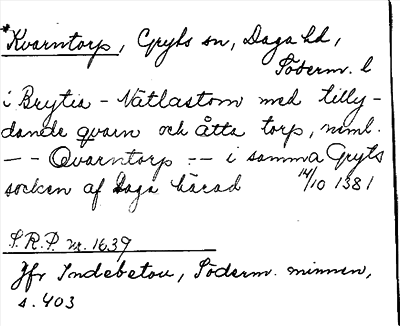 *Kvarntorp, Gryts sn, Daga hd,
Söderm. l
i Brytia - Nätlastom med tilly-
dande qvarn och åtta torp, näml.
-- Qvarntorp -- i samma Gryts
socken af Daga härad 14/10 1381
S.R.P. nr. 1639
Jfr Indebetou, Söderm. minnen,
s. 403